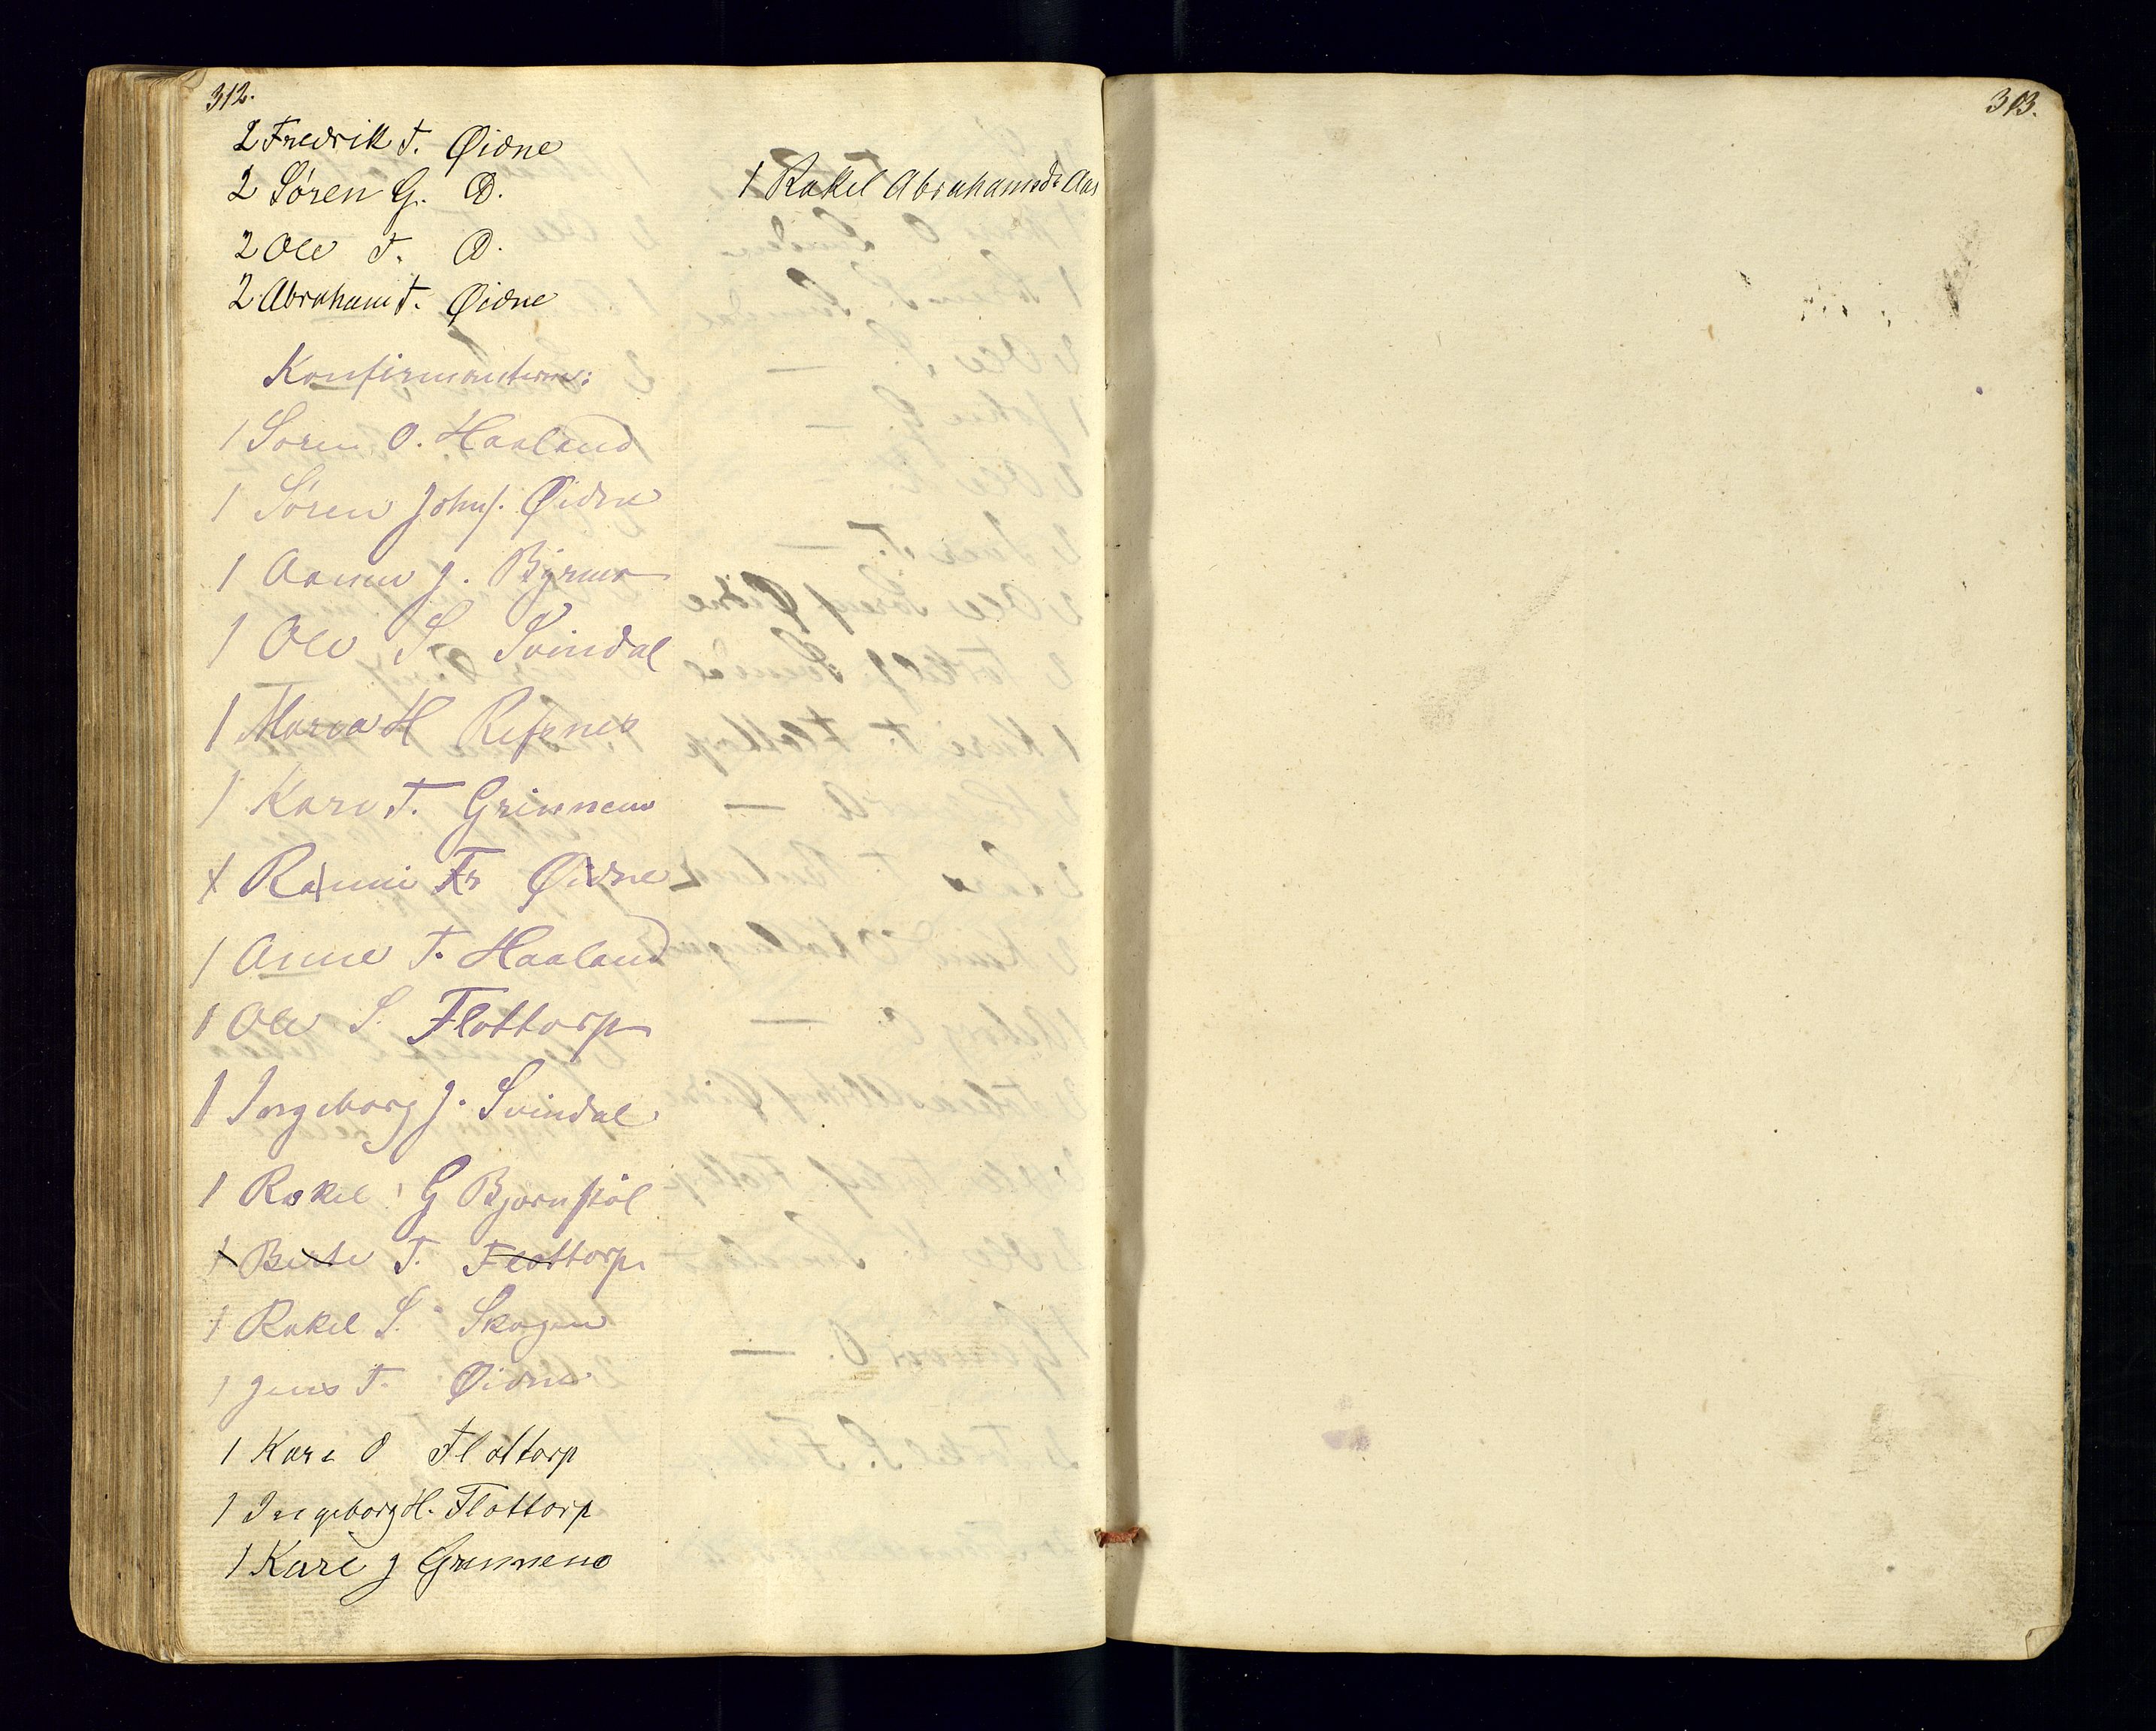 312.
2 Fredrik T. Øidne
2 Sören G. D.
2 Ole T. D.
2 Abraham T. Øidne
1 Rakel Abrahamsdr Aas
Konfirmanterne:
1 Sören O. Haaland
1 Sören Johns. Øidne
1 Aanen J. Byrmo
1 Ole S. Svindal
1 Maria H Refsnes
1 Kari T. Grinnem
1 Ranni Fr Øidne
1 Anne T. Haaland
1 Ole S. Flottorp
1 Ingeborg J. Svindal
1 Rakel G Bjørnstøl
1 Berte T. Flottorp
1 Rakel S. Skogen
1 Jens T. Øidne
1 Kari O Flottorp
1 Ingeborg H. Flottorp
1 Kari J Grinnem
313.